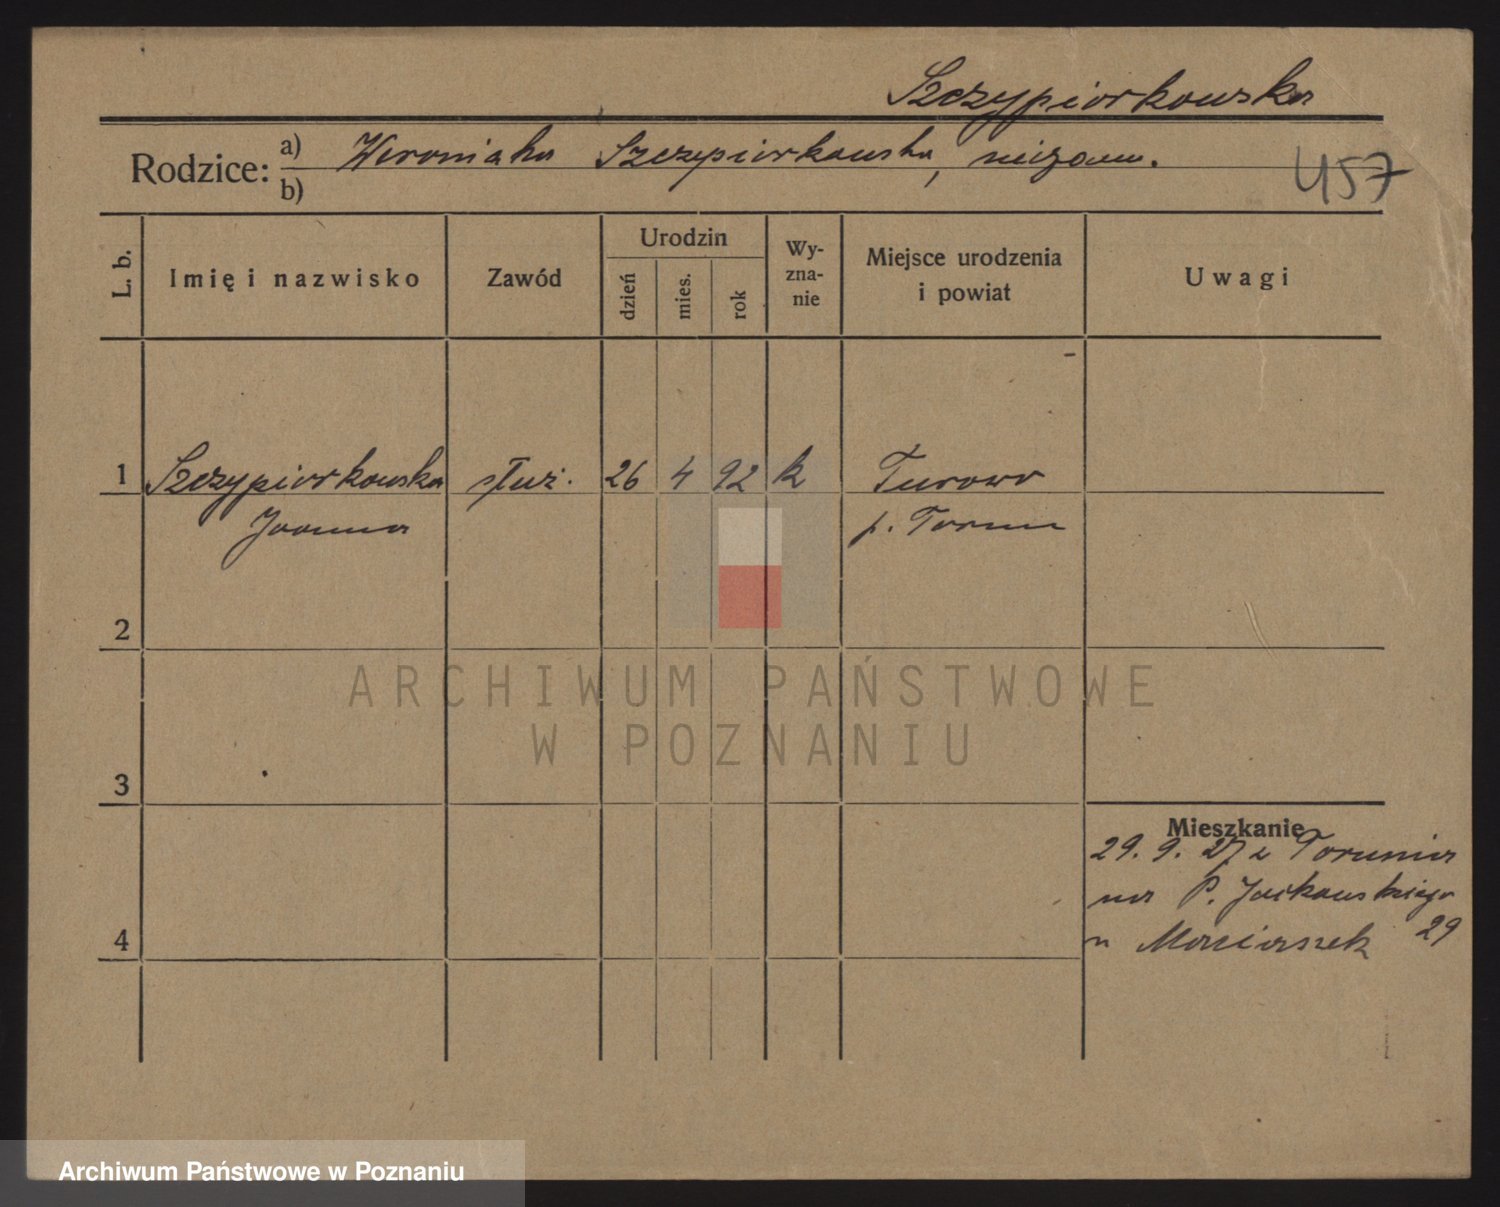 Szczypiorkowska
Rodzice: a) Weronika Szczypiorkowska, niezam.
b)
457
L. b.
Imię i nazwisko
Zawód
Urodzin
dzień
mies.
rok
Wy-
zna-
nie
Miejsce urodzenia
i powiat
Uwagi
1 Szczypiorkowska służ. 26 4 92 k Turowo
Joanna p. Toruń
2
3
4
Mieszkanie
29. 9. 27 z Torunia
na P. Jackowskiego
u 29
ARCHIWUM PAŃSTWOWE
W POZNANIU
Archiwum Państwowe w Poznaniu